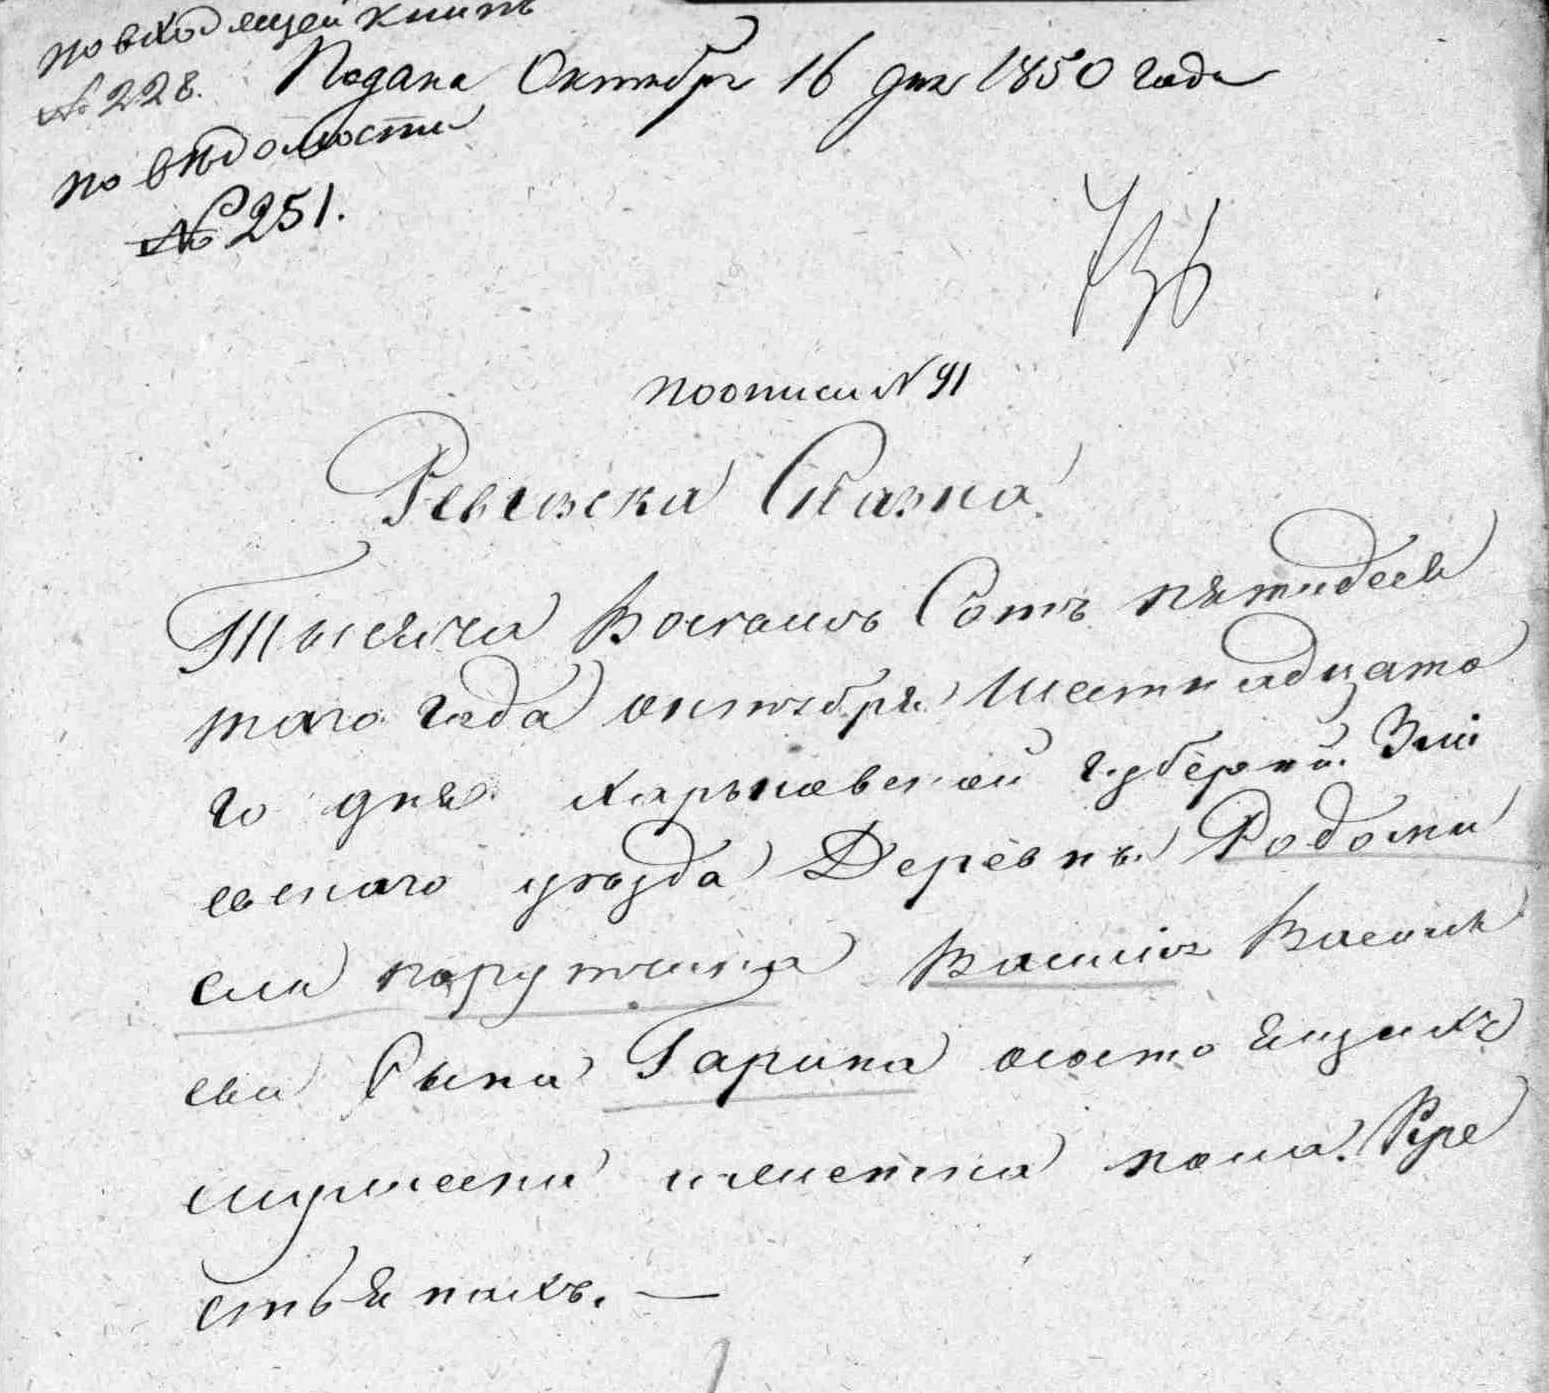 по входящей книгѣ
№ 228. Подана Октября 16 дня 1850 года
по вѣдомости
№ 251.
по описи N 91
Ревизска Сказка
Тысяча Восемь Сотъ пятидеся
таго года октября шестнадцато
го дня Харьковской губерніи Змі
евскаго уѣзда Деревнѣ
порутчика Василія Василь
ева Сына Гарина о состоящихъ
мужеска и женска пола Кре
стьянахъ. —